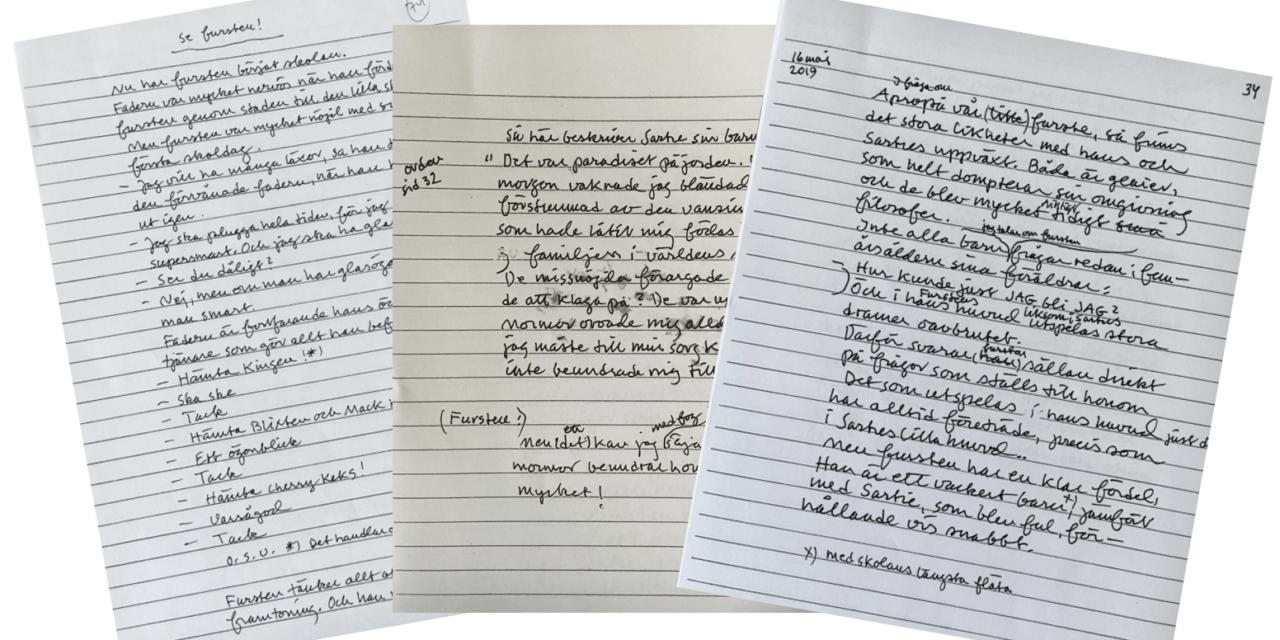 Se fursten!
Nu har fursten börjat skolan.
Fadern var mycket nervös när han förd
fursten genom staden till den lilla sk
Men fursten var mycket nöjd med si
första skoldag.
– Jag vill ha många läxor, sa han
den förvånade fadern, när han
ut igen.
– Jag ska plugga hela tiden, för jag
supersmart. Och jag ska ha gla
– Ser du dåligt?
– Nej, men om man har glasögo
man smart.
Fadern är fortfarande hans
tjänare som gör allt han bef
– Hämta Kingen! *)
– Ska ske
– Tack
– Hämta Blixten och Mack
– Ett ögonblick
– Tack
– Hämta cherry keks!
– Varsågod
– Tack
o.s.v. *) Det handlar
Fursten tänker allt
framtoning. Och han
ovan
sid 32
Så här beskriver Sartre sin barn
"Det var paradiset på jorden.
morgon vaknade jag bländad
förstummad av den vansin
som hade låtit mig födas
familjen i världens
De missnöjda förargade
de att klaga på? De var
mormor oroade mig alld
jag måste till min sorg k
inte beundrade mig till
(Fursten?)
en med fog
men (det) kan jag säga
mormor beundrar hon
mycket!
16 maj
2019
34
I fråga om
Apropå vår (lille) furste, så finns
det stora likheter med hans och
Sartres uppväxt. Båda är genier,
som helt dompterar sin omgivning
och de blev mycket tidigt små
filosofer.
jag talar om fursten
Inte alla barn frågar redan i fem-
årsåldern sina föräldrar:
– Hur kunde just JAG bli JAG?
Furstens liksom i Sartres
Och i hans huvud utspelas stora
dramer oavbrutet.
furstar
Därför svarar (han) sällan direkt
på frågor som ställs till honom
Det som utspelas i hans huvud just d
har alltid företräde, precis som
i Sartres lilla huvud..
Men fursten har en klar fördel,
Han är ett vackert barn x) jämfört
med Sartre, som blev ful, för-
hållande vis snabbt.
x) med skolans längsta fläta